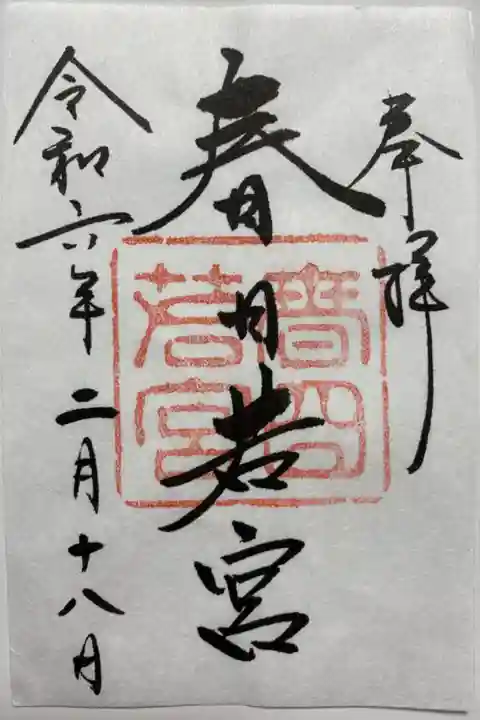 奉拝
春日若宮
春日
若宮
令和六年二月十八日